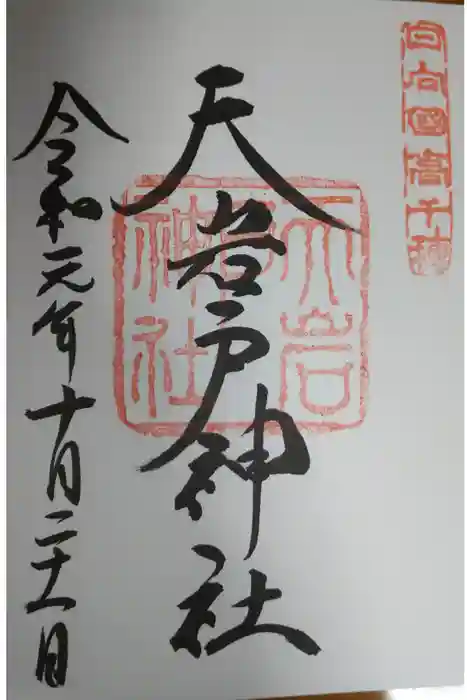 日向國高千穂
天岩戸神社
天岩戸神社
令和元年十月二十一日